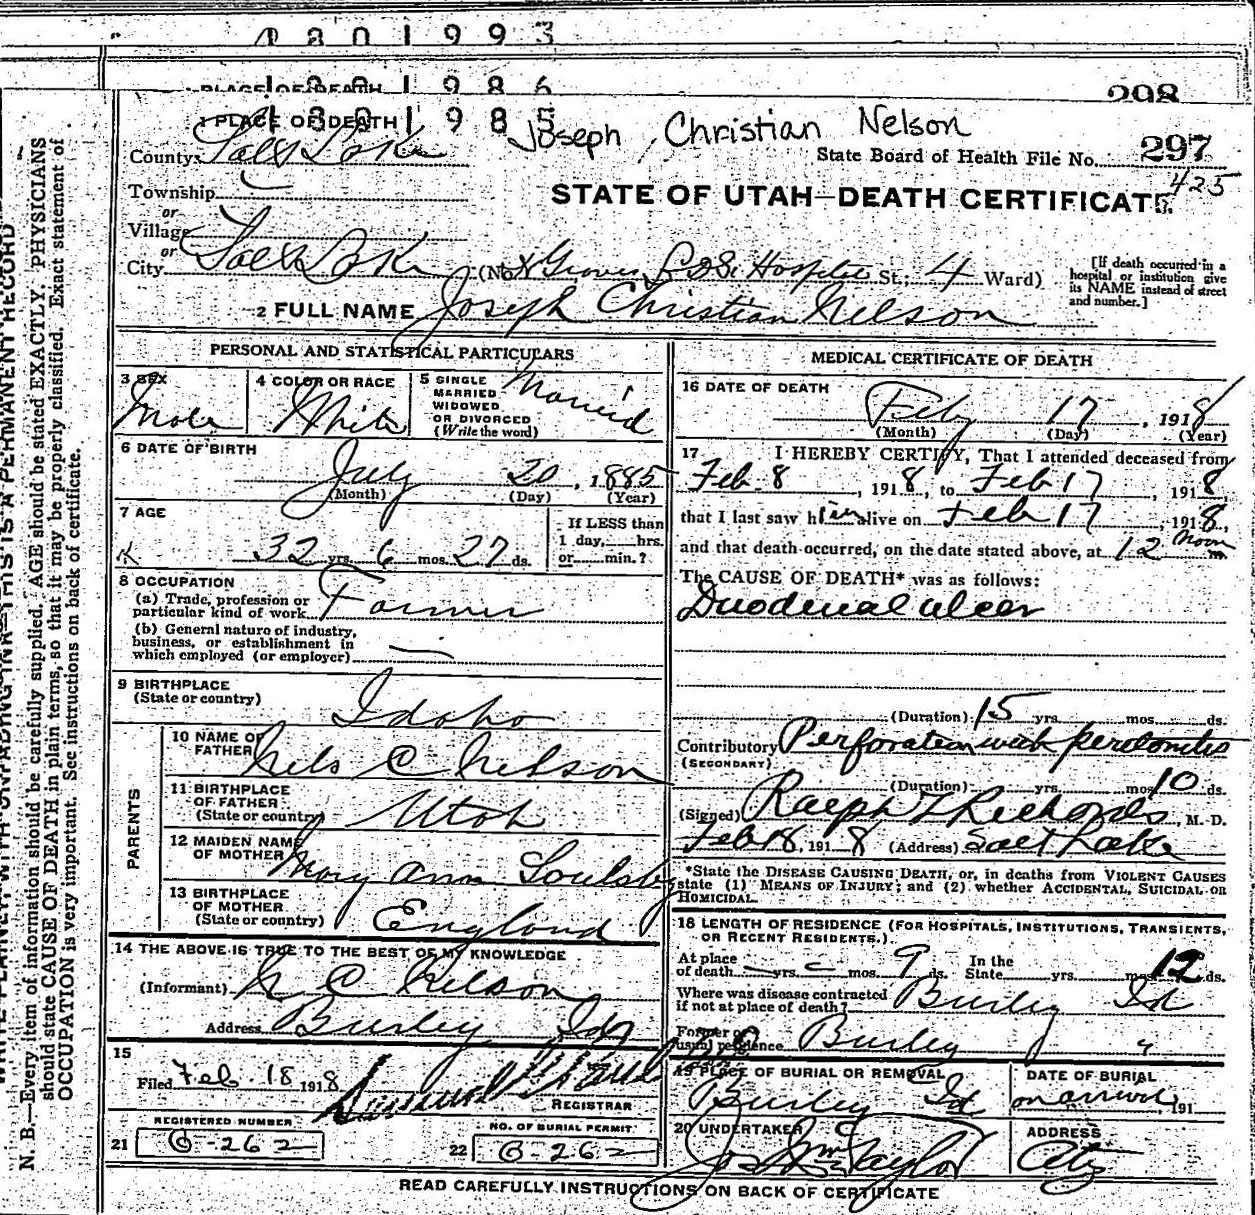 1801993
PLACE OF DEATH 1801986
298
1 PLACE OF DEATH 1801985
Joseph Christian Nelson
County Salt Lake
State Board of Health File No. 297
425
Township
STATE OF UTAH—DEATH CERTIFICATE.
or
Village
or
City Salt Lake (No. Groves L D S. Hospital St.; 4 Ward)
[If death occurred in a hospital or institution give its NAME instead of street and number.]
2 FULL NAME Joseph Christian Nelson
PERSONAL AND STATISTICAL PARTICULARS
3 SEX Male
4 COLOR OR RACE White
5 SINGLE MARRIED WIDOWED OR DIVORCED (Write the word) Married
6 DATE OF BIRTH
July 20, 1885
(Month) (Day) (Year)
7 AGE
32 yrs. 6 mos. 27 ds.
If LESS than 1 day, hrs. or min.?
8 OCCUPATION
(a) Trade, profession or particular kind of work Farmer
(b) General nature of industry, business, or establishment in which employed (or employer) —
9 BIRTHPLACE
(State or country) Idaho
PARENTS
10 NAME OF FATHER Nels C Nelson
11 BIRTHPLACE OF FATHER (State or country) Utah
12 MAIDEN NAME OF MOTHER Mary Ann Soulsby
13 BIRTHPLACE OF MOTHER (State or country) England
14 THE ABOVE IS TRUE TO THE BEST OF MY KNOWLEDGE
(Informant) N C Nelson
Address Burley Ida
15
Filed Feb. 18 1918
REGISTRAR
REGISTERED NUMBER
21 G-262
NO. OF BURIAL PERMIT
22 G-262
MEDICAL CERTIFICATE OF DEATH
16 DATE OF DEATH
Feby 17, 1918
(Month) (Day) (Year)
17 I HEREBY CERTIFY, That I attended deceased from
Feb. 8, 1918, to Feb 17, 1918
that I last saw him alive on Feb 17, 1918,
and that death occurred, on the date stated above, at 12 noon m
The CAUSE OF DEATH* was as follows:
Duodenal ulcer
(Duration) 15 yrs. mos. ds.
Contributory Perforation with peritonitis
(SECONDARY)
(Duration) yrs. mos. 10 ds.
(Signed) Ralph T Richards, M. D.
Feb 18, 1918 (Address) Salt Lake
*State the DISEASE CAUSING DEATH, or, in deaths from VIOLENT CAUSES state (1) MEANS OF INJURY; and (2) whether ACCIDENTAL, SUICIDAL OR HOMICIDAL.
18 LENGTH OF RESIDENCE (FOR HOSPITALS, INSTITUTIONS, TRANSIENTS, OR RECENT RESIDENTS.).
At place of death — yrs. — mos. 9 ds. In the State yrs. mos. 12 ds.
Where was disease contracted if not at place of death? Burley Id
Former or usual residence Burley "
19 PLACE OF BURIAL OR REMOVAL Burley Id
DATE OF BURIAL on arrival, 191
20 UNDERTAKER Jos Wm Taylor
ADDRESS City
READ CAREFULLY INSTRUCTIONS ON BACK OF CERTIFICATE
WRITE PLAINLY, WITH UNFADING INK—THIS IS A PERMANENT RECORD
N. B.—Every item of information should be carefully supplied. AGE should be stated EXACTLY. PHYSICIANS
should state CAUSE OF DEATH in plain terms, so that it may be properly classified. Exact statement of
OCCUPATION is very important. See instructions on back of certificate.